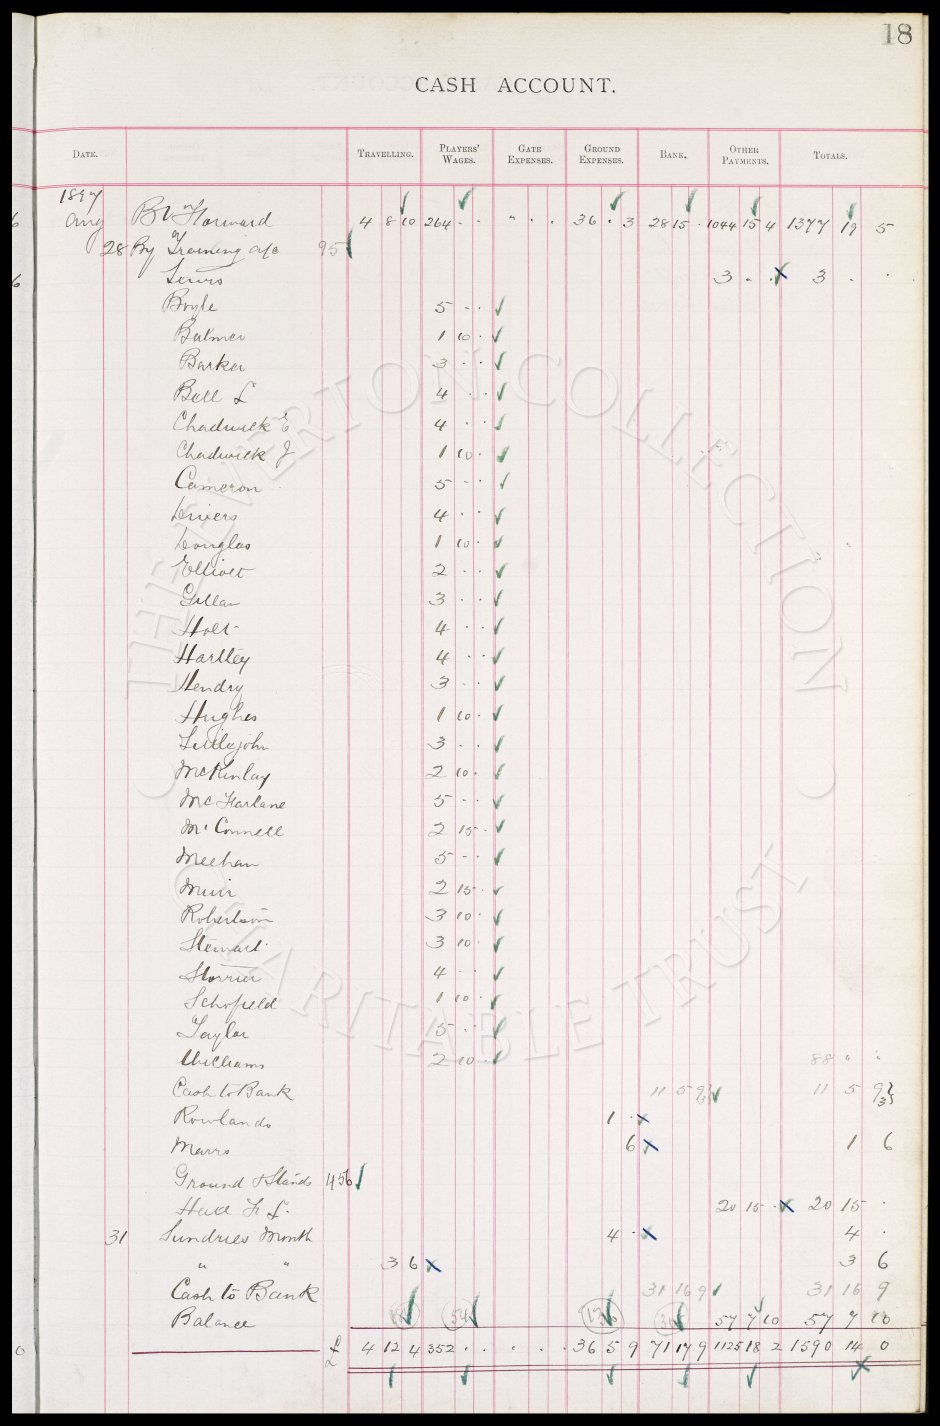 18
CASH ACCOUNT.
DATE. TRAVELLING. PLAYERS' WAGES. GATE EXPENSES. GROUND EXPENSES. BANK. OTHER PAYMENTS. TOTALS.
1897
Aug Bt Forward 4 8 10 264 · · " · · 36 · 3 28 15 · 1044 15 4 1377 19 5
28 By Training a/c 95
Lewis 3 · · 3 · ·
Boyle 5 · ·
Balmer 1 10 ·
Barker 3 · ·
Bell L 4 · ·
Chadwick E 4 · ·
Chadwick J 1 10 ·
Cameron 5 · ·
Divers 4 · ·
Douglas 1 10 ·
Elliott 2 · ·
Gillan 3 · ·
Holt 4 · ·
Hartley 4 · ·
Hendry 3 · ·
Hughes 1 10 ·
Littlejohn 3 · ·
McKinlay 2 10 ·
McFarlane 5 · ·
McConnell 2 15 ·
Meehan 5 · ·
Muir 2 15 ·
Robertson 3 10 ·
Stewart 3 10 ·
Storrier 4 · ·
Schofield 1 10 ·
Taylor 5 · ·
Williams 2 10 · 88 " "
Cash to Bank 11 5 9 3 11 5 9 3
Rowlands 1 ·
Marrs 6 1 6
Ground & Stands 456
Hall F L. 20 15 · 20 15 ·
31 Sundries Month 4 · 4 ·
" " 3 6 3 6
Cash to Bank 31 16 9 31 16 9
Balance 54 57 7 10 57 7 10
£ 4 12 4 352 · · " · · 36 5 9 71 17 9 1125 18 2 1590 14 0
THE EVERTON COLLECTION
CHARITABLE TRUST